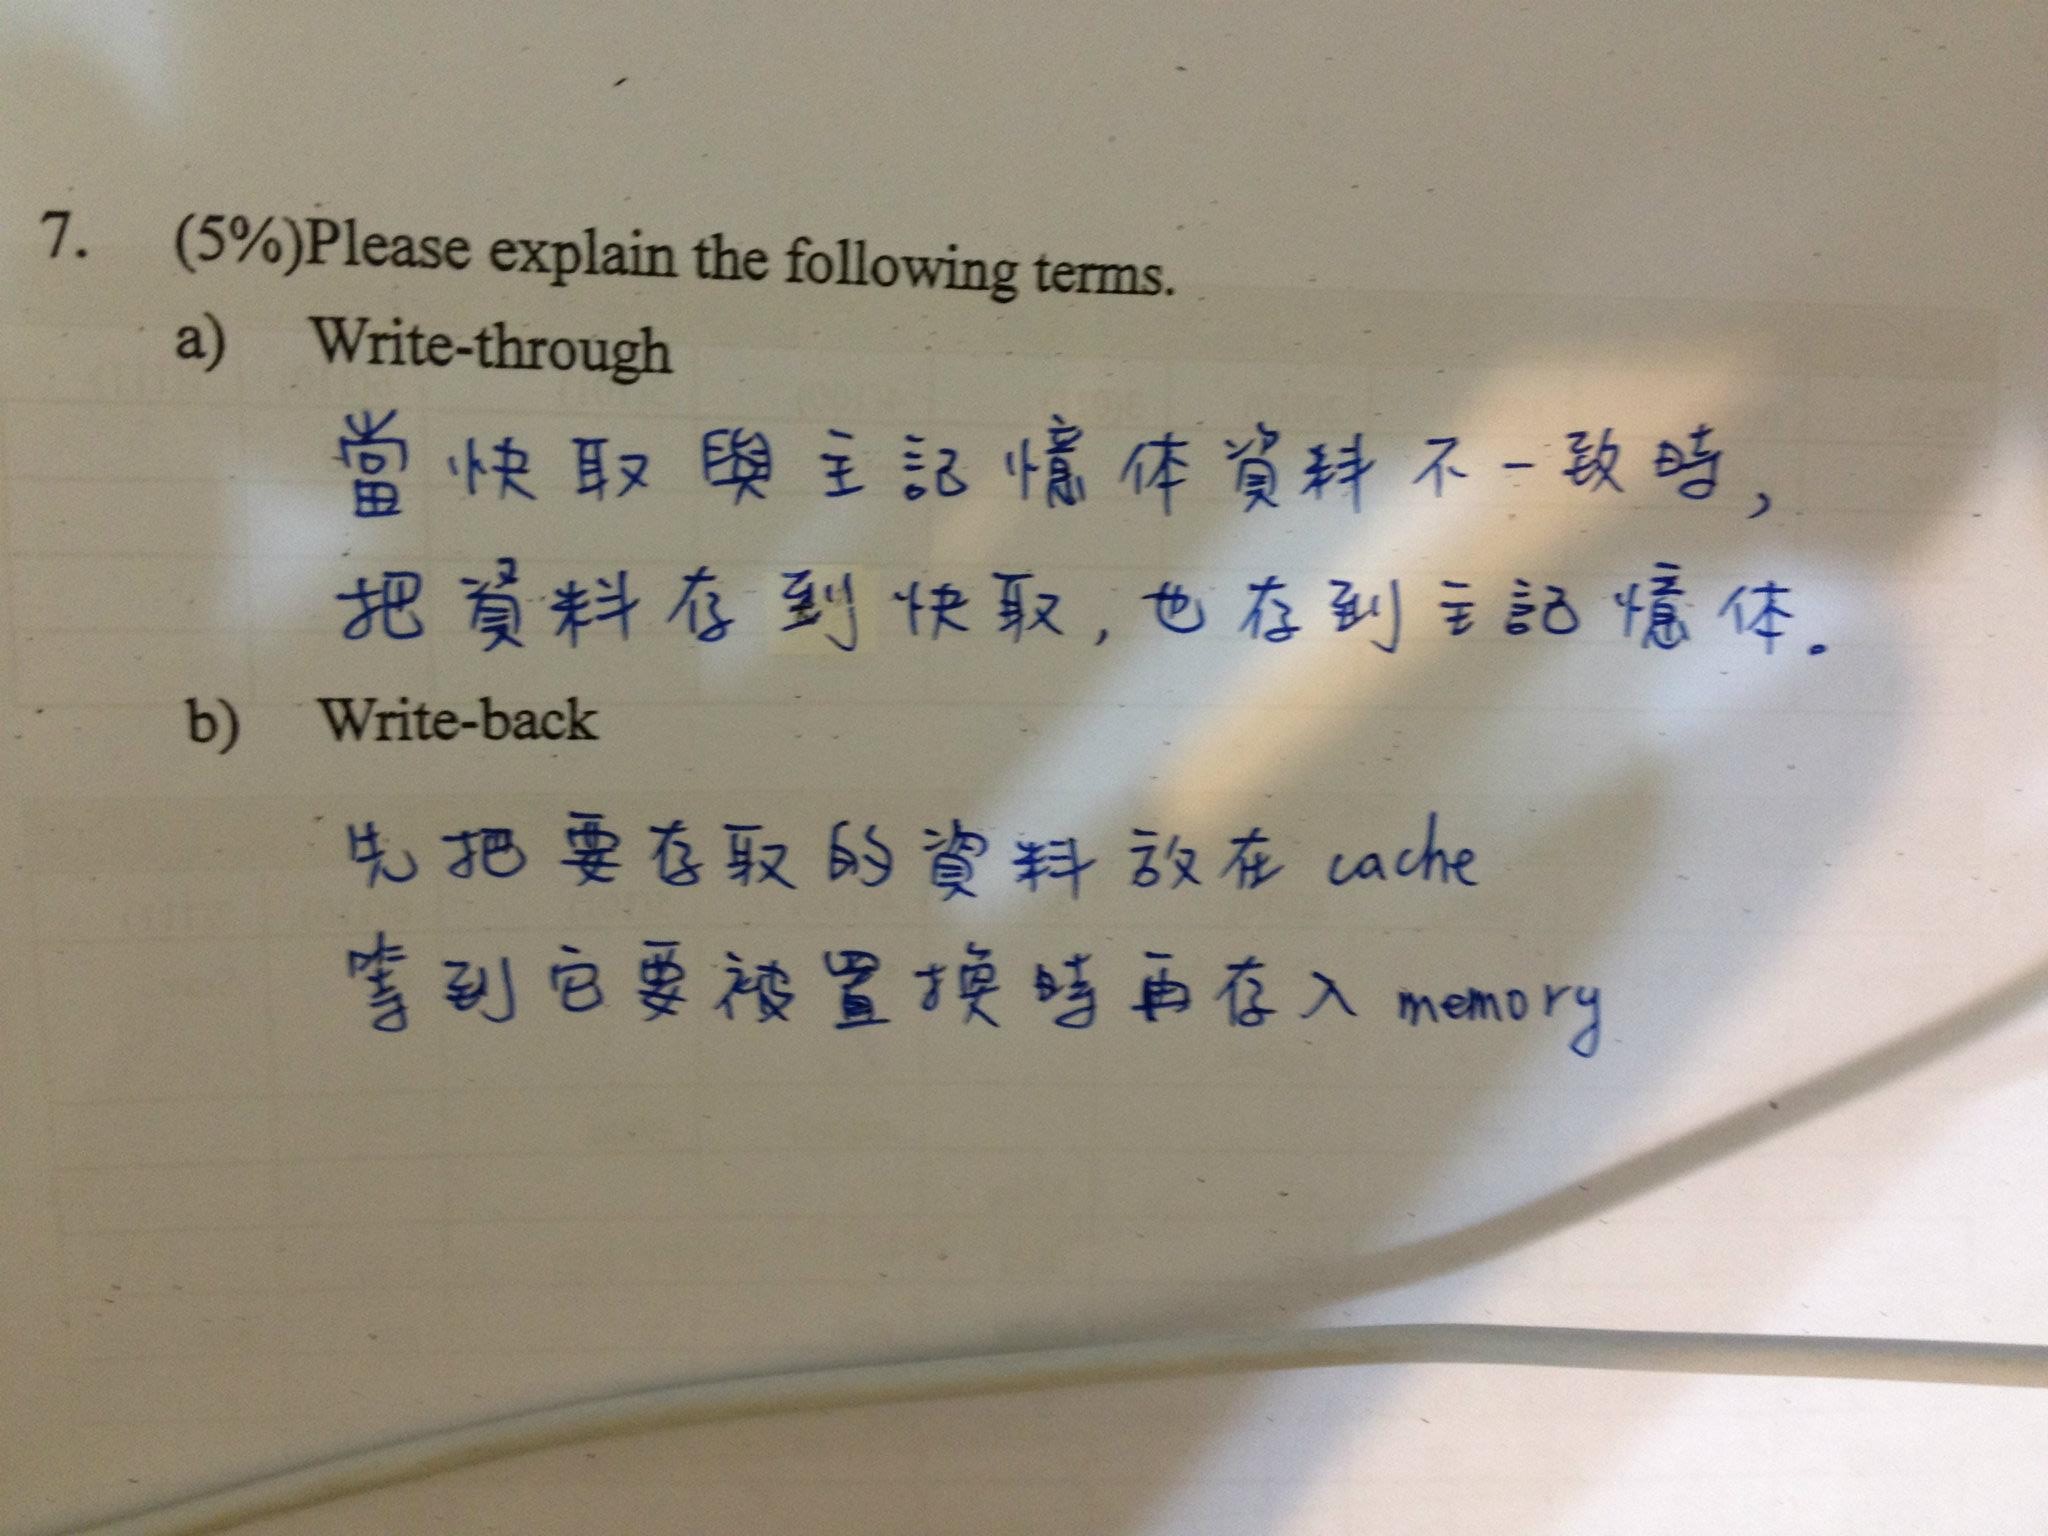 7. (5%)Please explain the following terms.
a) Write-through
當快取與主記憶体資料不一致時,
把資料存到快取,也存到主記憶体。
b) Write-back
先把要存取的資料放在 cache
等到它要被置換時再存入 memory